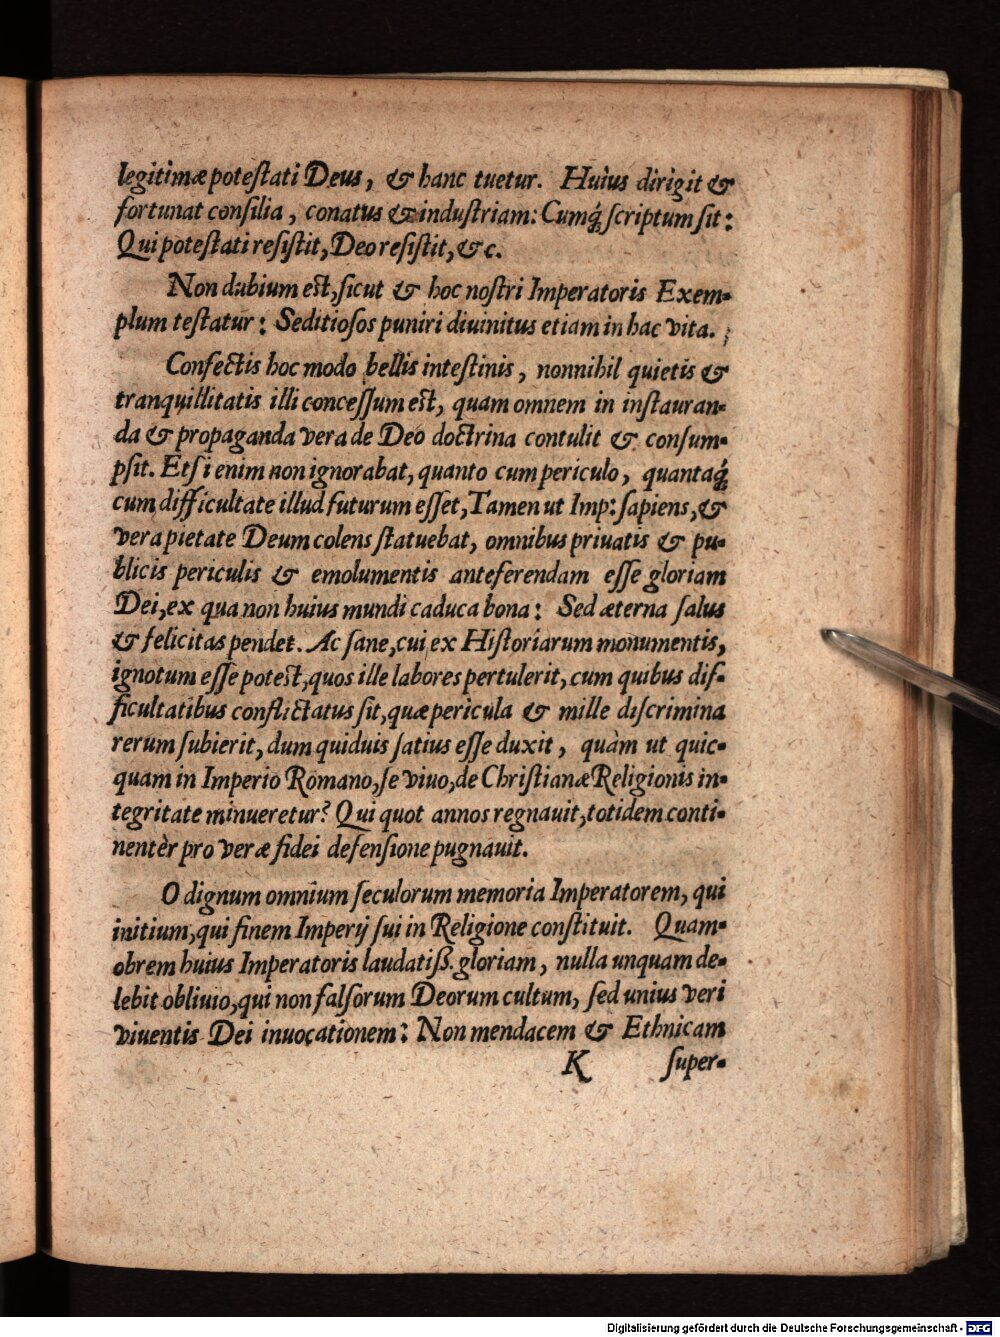 legitimæ poteſtati Deus, & hanc tuetur. Huius dirigit &
fortunat conſilia, conatus & induſtriam: Cumq́; ſcriptum ſit:
Qui poteſtati reſiſtit, Deo reſiſtit, &c.
Non dubium eſt, ſicut & hoc noſtri Imperatoris Exem-
plum teſtatur: Seditioſos puniri diuinitus etiam in hac vita.
Confectis hoc modo bellis inteſtinis, nonnihil quietis &
tranquillitatis illi conceſſum eſt, quam omnem in inſtauran-
da & propaganda vera de Deo doctrina contulit & conſum-
pſit. Etſi enim non ignorabat, quanto cum periculo, quantaq́;
cum difficultate illud futurum eſſet, Tamen ut Imp: ſapiens, &
vera pietate Deum colens ſtatuebat, omnibus priuatis & pu-
blicis periculis & emolumentis anteferendam eſſe gloriam
Dei, ex qua non huius mundi caduca bona: Sed æterna ſalus
& felicitas pendet. Ac ſane, cui ex Hiſtoriarum monumentis,
ignotum eſſe poteſt, quos ille labores pertulerit, cum quibus dif-
ficultatibus conflictatus ſit, quæ pericula & mille diſcrimina
rerum ſubierit, dum quiduis ſatius eſſe duxit, quàm ut quic-
quam in Imperio Romano, ſe viuo, de Chriſtianæ Religionis in-
tegritate minueretur? Qui quot annos regnauit, totidem conti-
nentèr pro veræ fidei defenſione pugnauit.
O dignum omnium ſeculorum memoria Imperatorem, qui
initium, qui finem Imperij ſui in Religione conſtituit. Quam-
obrem huius Imperatoris laudatiß. gloriam, nulla unquam de-
lebit obliuio, qui non falſorum Deorum cultum, ſed unius veri
viuentis Dei inuocationem: Non mendacem & Ethnicam
K ſuper-
Digitalisierung gefördert durch die Deutsche Forschungsgemeinschaft - DFG